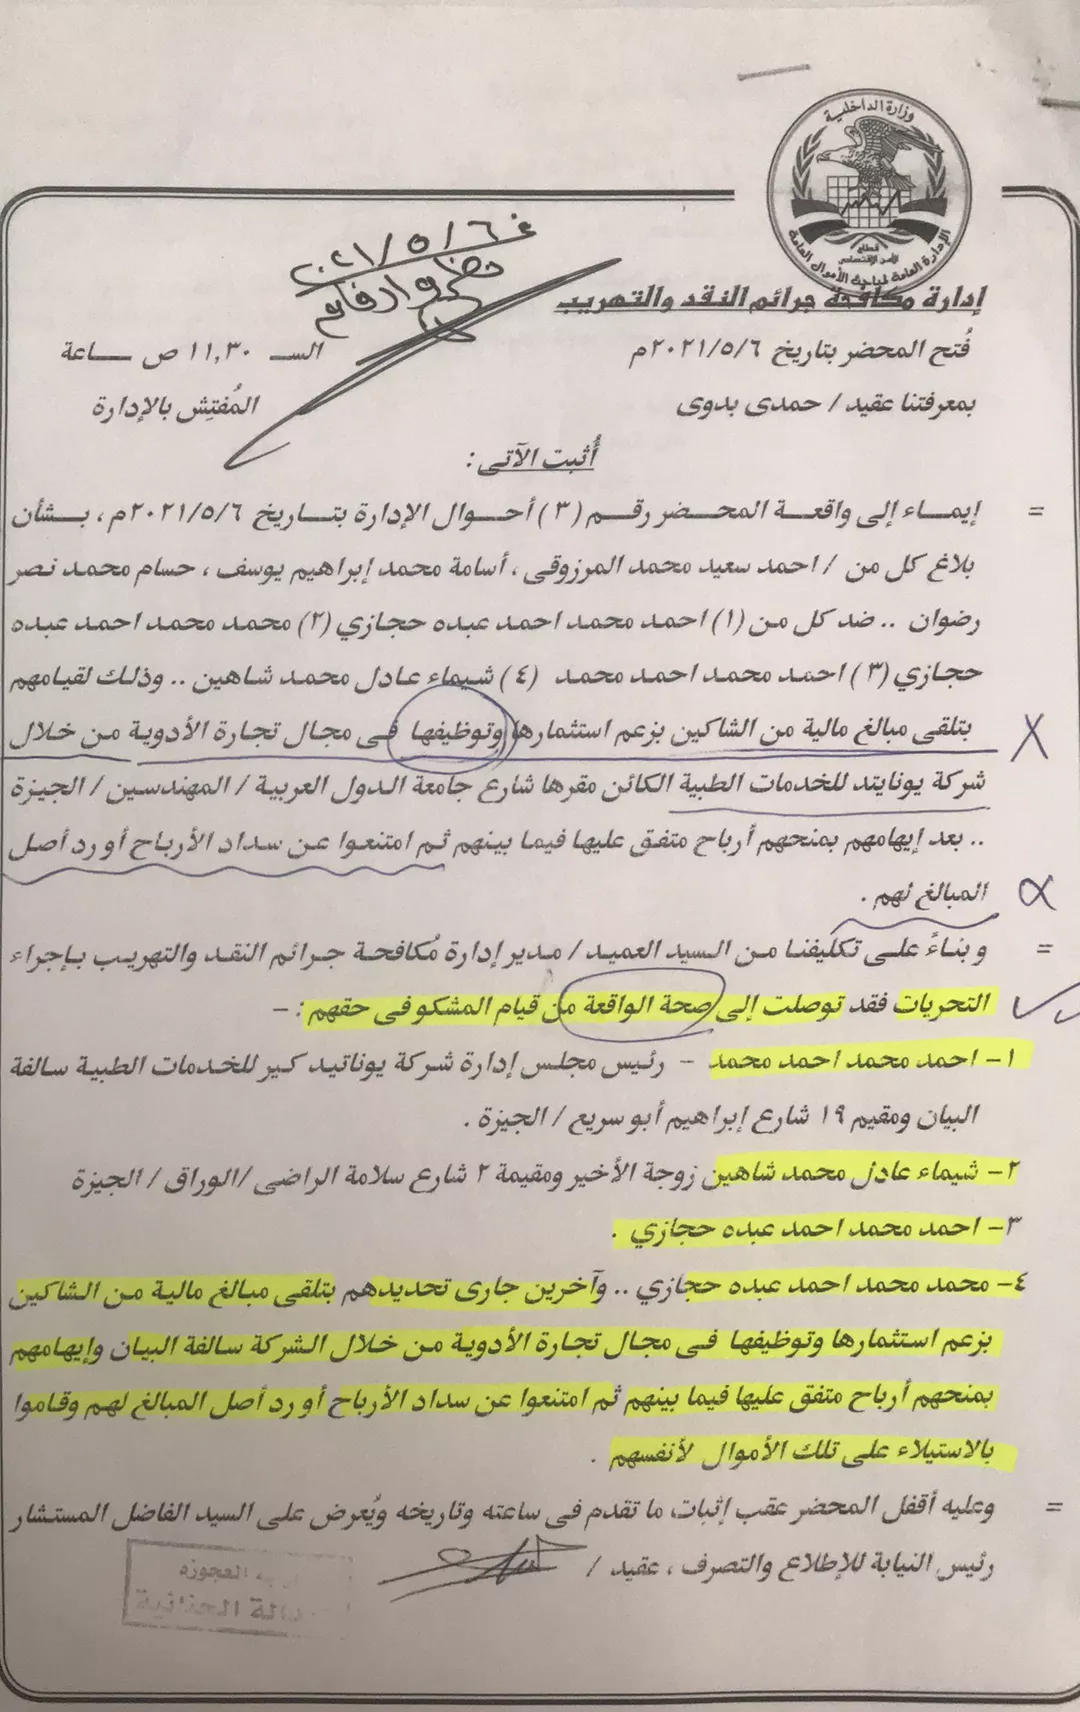 وزارة الداخلية
قطاع
الأمن الاقتصادى
الإدارة العامة لمباحث الأموال العامة
٢٠٢١/٥/٦
نظر وارفاق
إدارة مكافحة جرائم النقد والتهريب
فُتح المحضر بتاريخ ٢٠٢١/٥/٦م السـ ١١,٣٠ ص ـاعة
بمعرفتنا عقيد / حمدى بدوى المُفتِش بالإدارة
أُثبت الآتى :
= إيماء إلى واقعة المحضر رقم (٣) أحوال الإدارة بتاريخ ٢٠٢١/٥/٦م ، بشأن
بلاغ كل من / احمد سعيد محمد المرزوقى ، أسامة محمد إبراهيم يوسف ، حسام محمد نصر
رضوان .. ضد كل من (١) احمد محمد احمد عبده حجازي (٢) محمد محمد احمد عبده
حجازي (٣) احمد محمد احمد محمد (٤) شيماء عادل محمد شاهين .. وذلك لقيامهم
بتلقى مبالغ مالية من الشاكين بزعم استثمارها وتوظيفها فى مجال تجارة الأدوية من خلال
شركة يونايتد للخدمات الطبية الكائن مقرها شارع جامعة الدول العربية / المهندسين / الجيزة
.. بعد إيهامهم بمنحهم أرباح متفق عليها فيما بينهم ثم امتنعوا عن سداد الأرباح أو رد أصل
المبالغ لهم .
= و بناءً على تكليفنا من السيد العميد / مدير إدارة مُكافحة جرائم النقد والتهريب بإجراء
التحريات فقد توصلت إلى صحة الواقعة من قيام المشكو فى حقهم : –
١- احمد محمد احمد محمد – رئيس مجلس إدارة شركة يوناتيد كير للخدمات الطبية سالفة
البيان ومقيم ١٩ شارع إبراهيم أبو سريع / الجيزة .
٢- شيماء عادل محمد شاهين زوجة الأخير ومقيمة ٢ شارع سلامة الراضى /الوراق / الجيزة
٣- احمد محمد احمد عبده حجازي .
٤- محمد محمد احمد عبده حجازي .. وآخرين جارى تحديدهم بتلقى مبالغ مالية من الشاكين
بزعم استثمارها وتوظيفها فى مجال تجارة الأدوية من خلال الشركة سالفة البيان وإيهامهم
بمنحهم أرباح متفق عليها فيما بينهم ثم امتنعوا عن سداد الأرباح أو رد أصل المبالغ لهم وقاموا
بالاستيلاء على تلك الأموال لأنفسهم .
= وعليه أقفل المحضر عقب إثبات ما تقدم فى ساعته وتاريخه ويُعرض على السيد الفاضل المستشار
رئيس النيابة للإطلاع والتصرف ، عقيد /